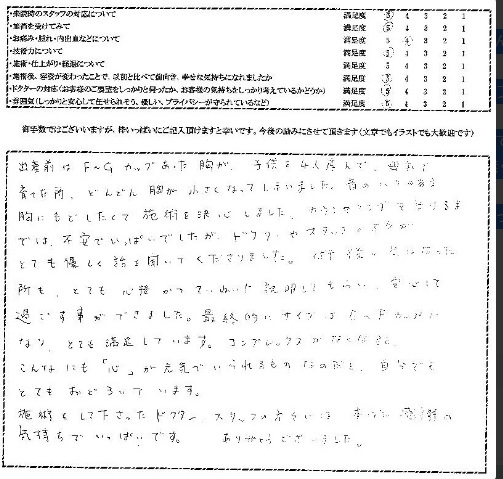 ・来院時のスタッフの対応について 満足度 5 4 3 2 1
・施術を受けてみて 満足度 5 4 3 2 1
・お痛み・腫れ・内出血などについて 満足度 5 4 3 2 1
・技術力について 満足度 5 4 3 2 1
・施術・仕上がり・経過について 満足度 5 4 3 2 1
・施術後、容姿が変わったことで、以前と比べて前向き、幸せな気持ちになれましたか 満足度 5 4 3 2 1
・ドクターの対応(お客様のご要望をしっかりと伺ったか、お客様の気持ちをしっかり考えているかどうか) 満足度 5 4 3 2 1
・雰囲気(しっかりと安心して任せられそう、優しい、プライバシーが守られているなど) 満足度 5 4 3 2 1
御手数ではございますが、枠いっぱいにご記入頂けますと幸いです。今後の励みにさせて頂きます(文章でもイラストでも大歓迎です)
出産前はF〜Gカップあった胸が、子供を4人産んで、母乳で
育てた所、どんどん胸が小さくなってしまいました。昔のハリのある
胸にもどしたくて施術を決心しました。カウンセリングを受けるま
では、不安でいっぱいでしたが、ドクターやスタッフの方が
とても優しく話を聞いてくださりました。術後に気になった
所も、とても心強かったていねいに説明してもらい、安心して
過ごす事ができました。最終的にサイズはFカップに
なり、とても満足しています。コンプレックスがなくなると、
こんなにも「心」が元気でいられるものなのだと、自分でも
とてもおどろいています。
施術をして下さったドクター、スタッフの方々には、本当に感謝の
気持ちでいっぱいです。 ありがとうございました。